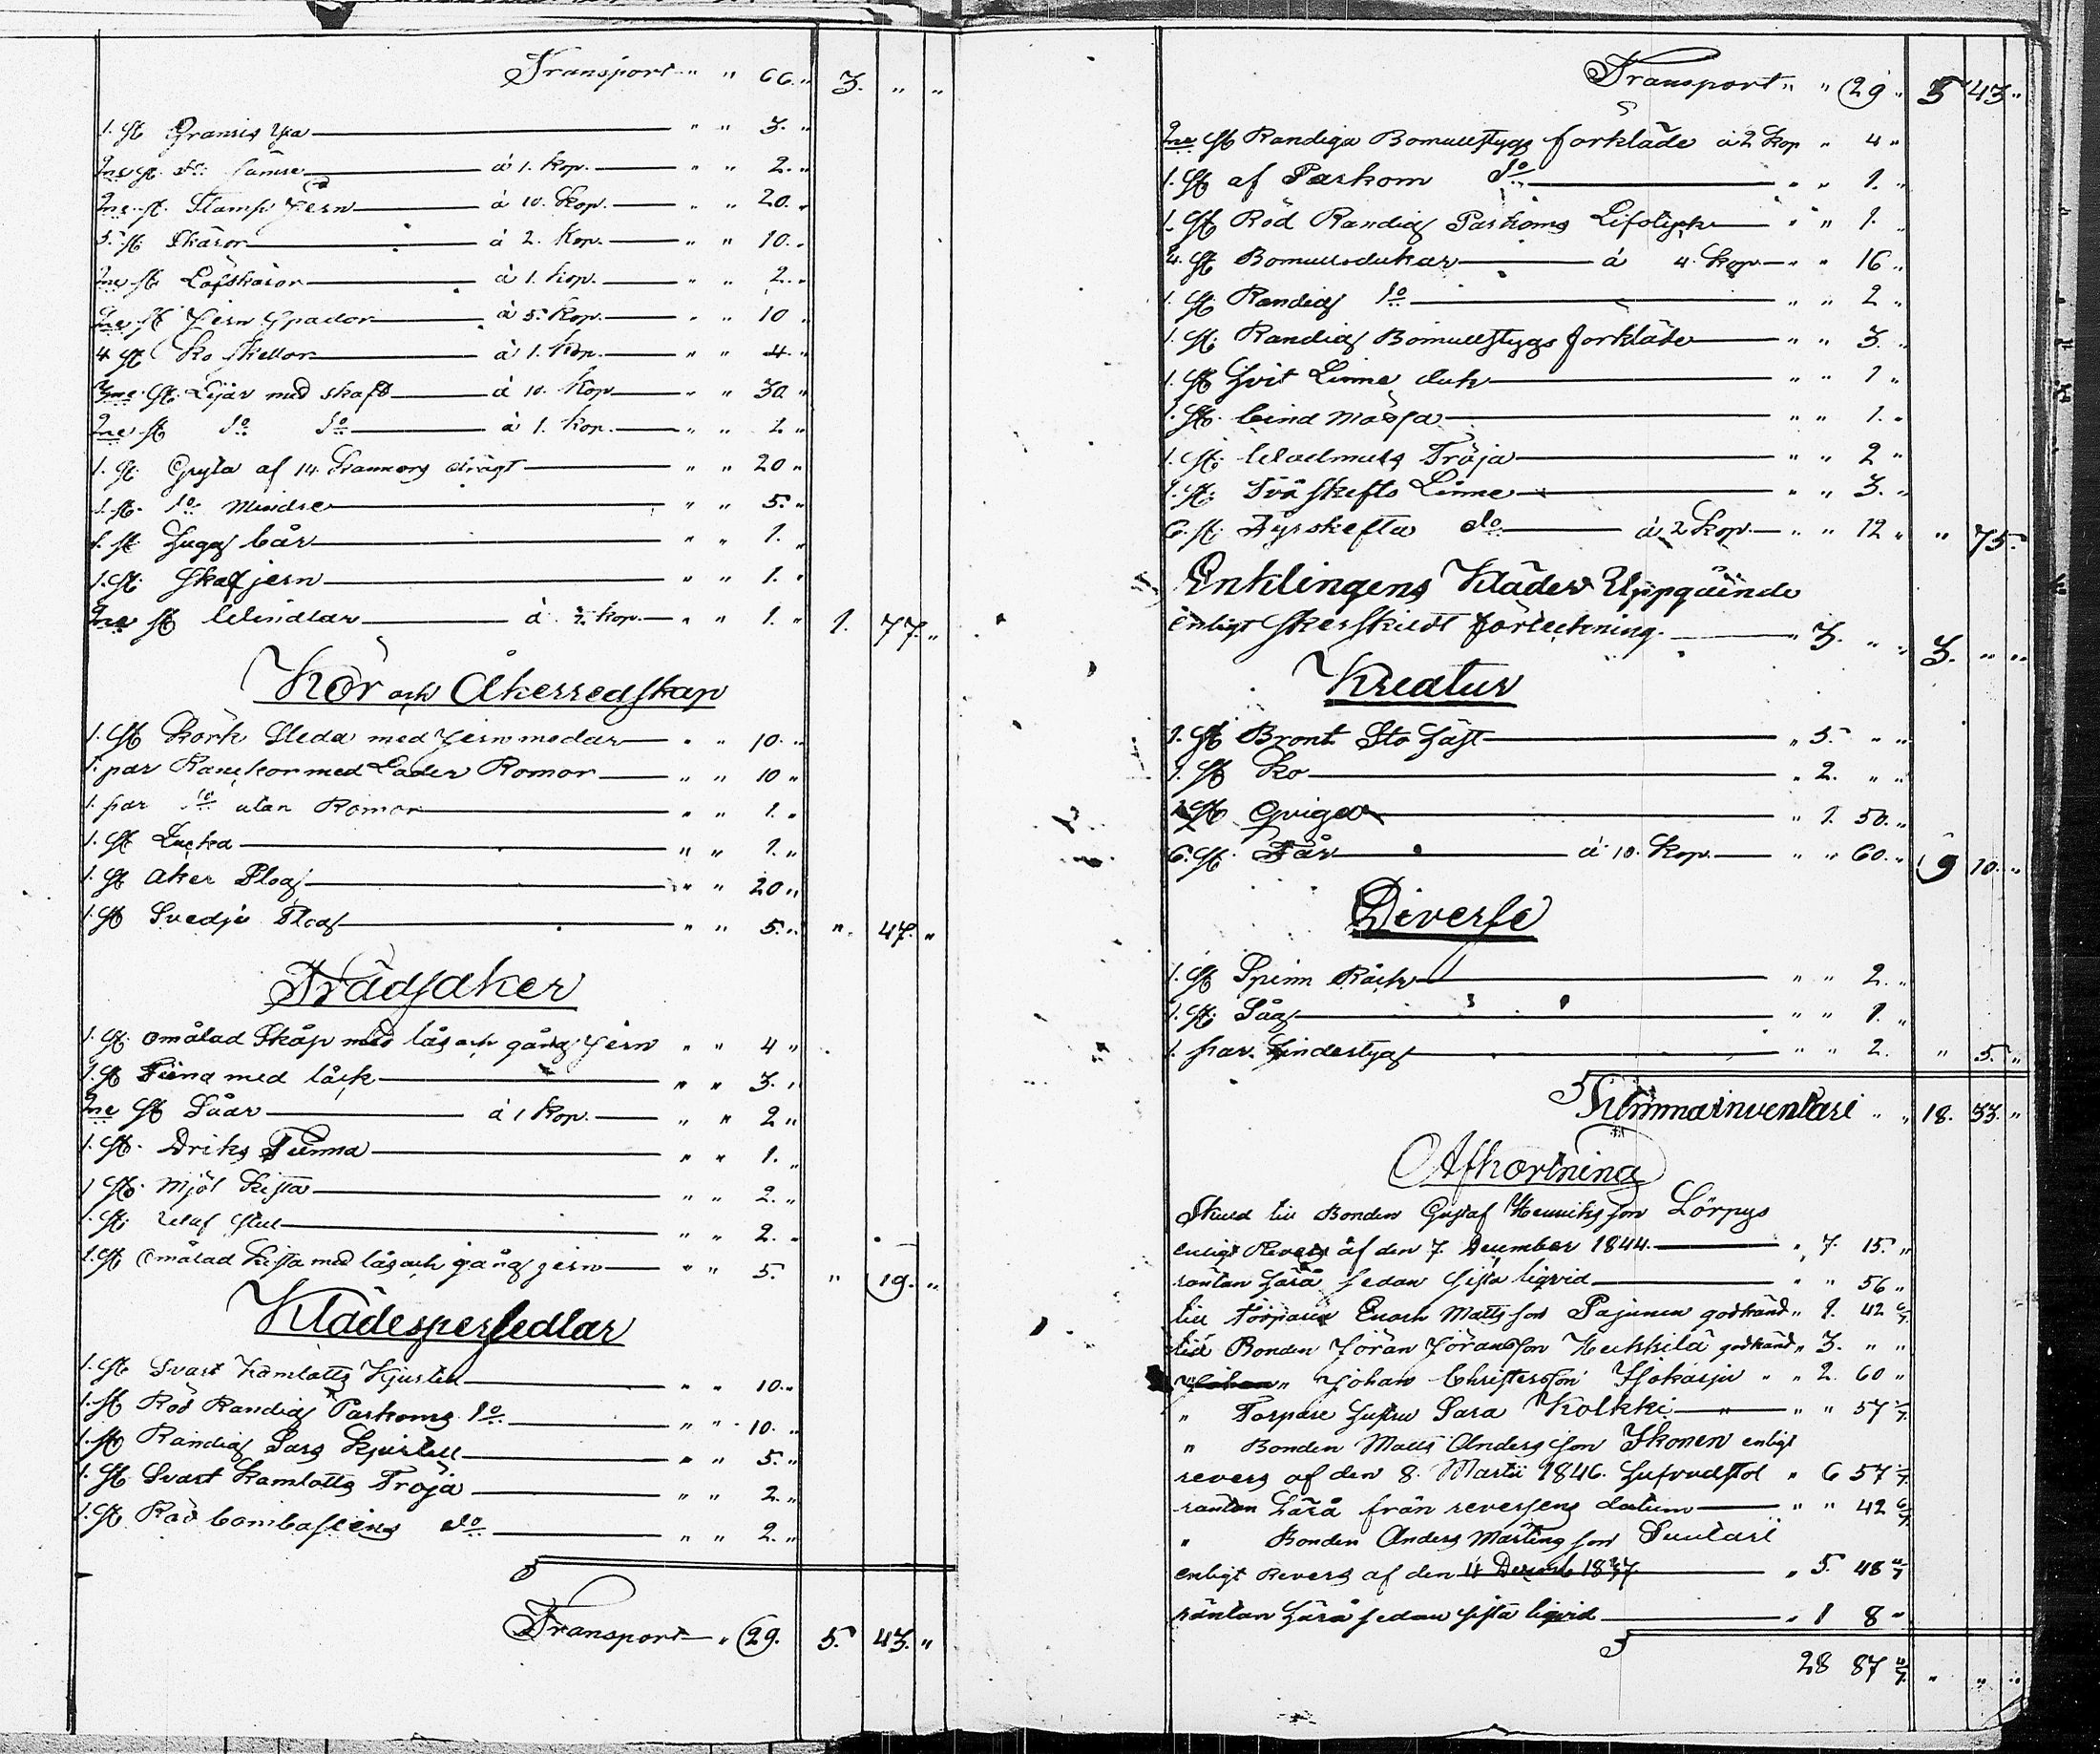 Transport " " 66. " 3. " "
1. st Gransis Yxa " " 3. "
2ne st do Sämre à 1. kop. " " 2. "
2ne st. Stamp Jern à 10. kop. " " 20. "
5. st Skäror à 2. kop. " " 10. "
2ne st Löfskäror à 1. kop. " " 2. "
2ne st Jern Spador à 5. kop. " " 10 "
4 st Ko skellor à 1. kop. " " 4. "
3ne st. Lijar med skaft à 10. kop " " 30 "
2ne st do do à 1. kop. " " 2 "
1. st. Gryta af 14. kannors drägt " " 20 "
1. st. do Mindre " " 5. "
1. st bår " " 1. "
1. st. Skafjern " " 1. "
2ne st Windlar à ½ kop. " " 1. " 1. 77. "
Kör och Åkerredskap
1. st Körk Släda med Jern medar " " 10. "
1. par Ranckor med Läder Romor " " 10 "
1. par do utan Romor " " 1. "
1. st Lucka " " 1. "
1. st Åker Plog " " 20 "
1. st Svedje Plog " " 5. " " 47. "
Trädsaker
1. st. omålad Skåp med lås och gång jern " " 4 "
1. st Tiina med låck " " 3. "
2ne st Såar à 1 kop. " " 2 "
1. st. Dricks Tunna " " 1. "
1 st. Mjöl Kista " " 2. "
1. st. Wäf stol " " 2. "
1. st omålad Kista med lås och gång jern " " 5. " 19. "
Klädespersedlar
1. st Svart Kamlotts Kjortel " " 10. "
1. st Röd Randig Parkoms do " " 10. "
1. st Randig Sars Kjortell " " 5. "
1. st Svart Kamlotts Tröja " " 2. "
1. st Röd bombasiens do " " 2. "
Transport " 29. 5. 43. "
Transport " " 29 " 5 43 "
2ne st Randiga Bomullstygs förkläde à 2 kop " 4 "
1. st af Parkom do " " 1. "
1. st Röd Randig Parkoms Lifstycke " " 1. "
4. st Bomullsdukar à 4. kop. " " 16 "
1. st Randig do " " 2 "
1. st. Randig Bomullstygs förkläde " " 3. "
1. st Hvit Linne duk " " 1 "
1. st. bind Mössa " " 1. "
1. st. Wadmals Tröja " " 2 "
1. st. Två skefts Linne " " 3. "
6. st. Fyrskefta do à 2 kop. " " 12 " " 75. "
Enklingens Kläder Uppgående
enligt skerskildt förteckning. " 3. " " 3. " "
Kreatur
1. st Brunt Sto Häst " 5. " "
1. st Ko " 2. " "
1 st Qviga " 1. 50. "
6. st. Får à 10. kop. " " 60. " 9 10. "
Diverse
1. st Spinn Råck " " 2. "
1. st. Såg " " 1. "
1. par. " " 2. " 5. "
Summa inventari " " 18. 33. "
Afkortning
Skuld till Bonden Gustaf Henriksson Lörpys
enligt Revers af den 7. December 1844. " 7. 15. "
räntan härå sedan sista liqvid " " 56 "
till Torparen Enoch Mattsson Pajunen godkänd " 1. 42 6/7
till Bonden Jöran Jöransson Heikkilä godkänd " 3. " "
" Johan Christersson " " 2. 60 "
" Torpare hustru Sara Kolkki " " " 57 1/7
" Bonden Matts Andersson Ikonen enligt
revers af den 8. Martii 1846. hufvudstol " 6 57 1/7
räntan härå från reversens datum " " 42 6/7
" Bonden Anders Mårtensson Suutari
enligt Revers af den 11 Decemb 1837 " 5. 48 4/7
räntan härå sedan sista liqvid " 1 8 "
28 87 4/7 " " "